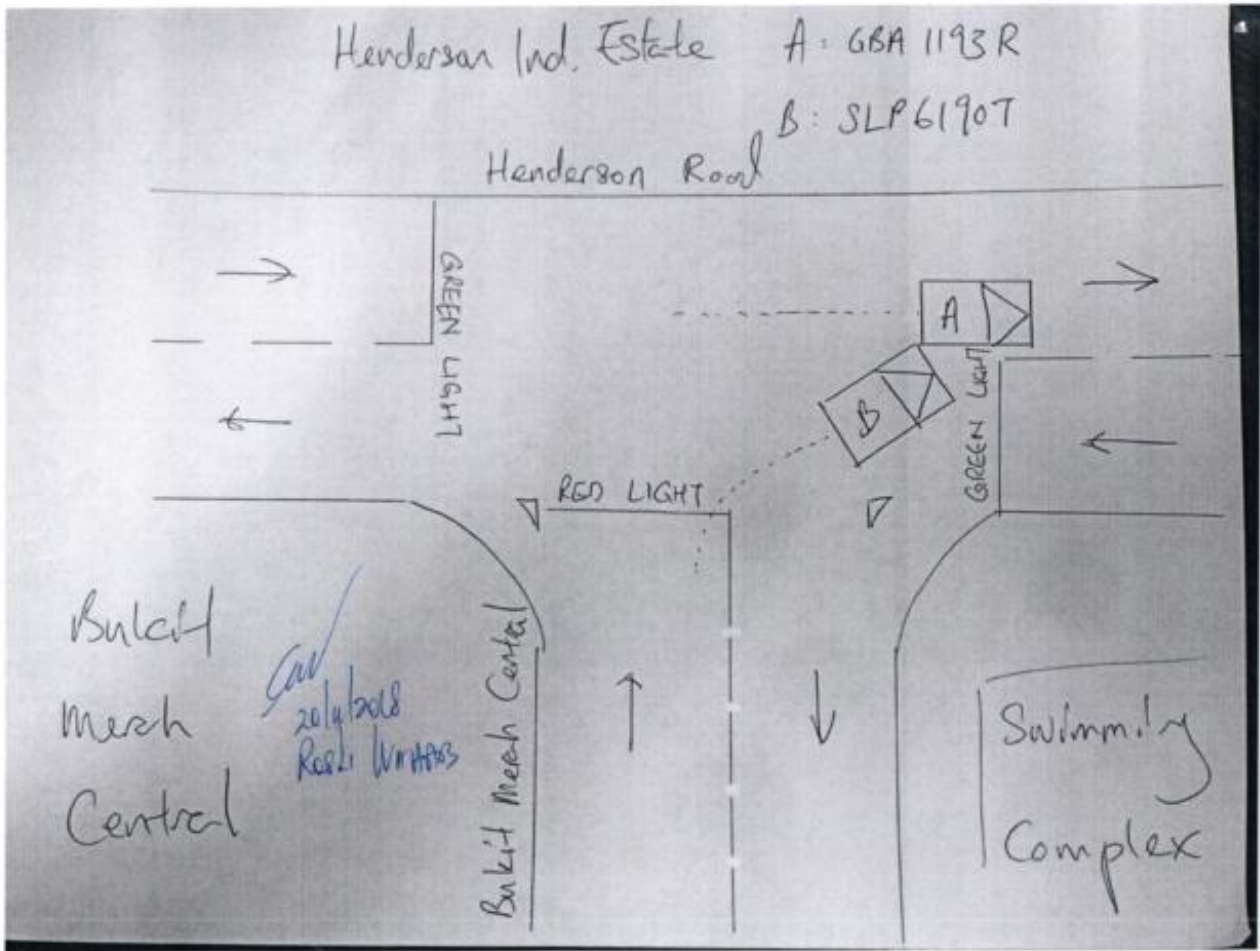 Henderson Ind. Estate A: GBA 1193R
B: SLP6190T
Henderson Road
GREEN LIGHT
A
GREEN LIGHT
B
RED LIGHT
Bukit
Merah
Central
20/4/2018
Bukit Merah Central
Swimming
Complex